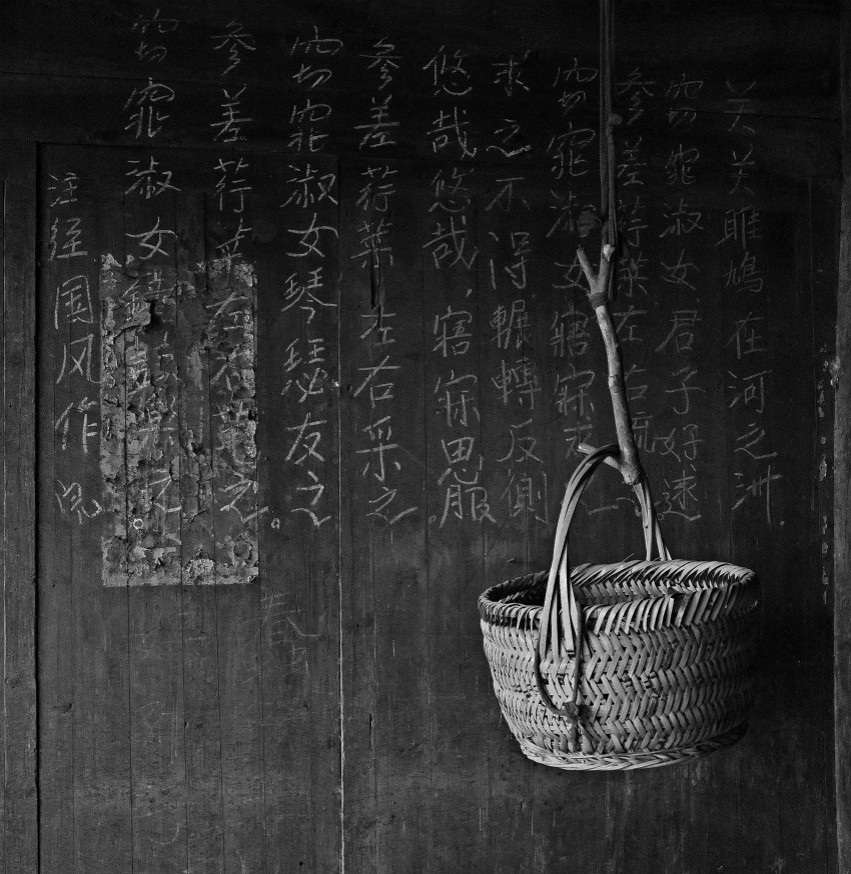 关关雎鳩在河之洲.
窈窕淑女君子好逑
参差荇菜左右流之
窈窕淑女寤寐求之
求之不得輾轉反側
悠哉悠哉,寤寐思服
参差荇菜左右采之
窈窕淑女琴瑟友之
参差荇菜左右芼之。
窈窕淑女鐘鼓樂之。
注经国风作